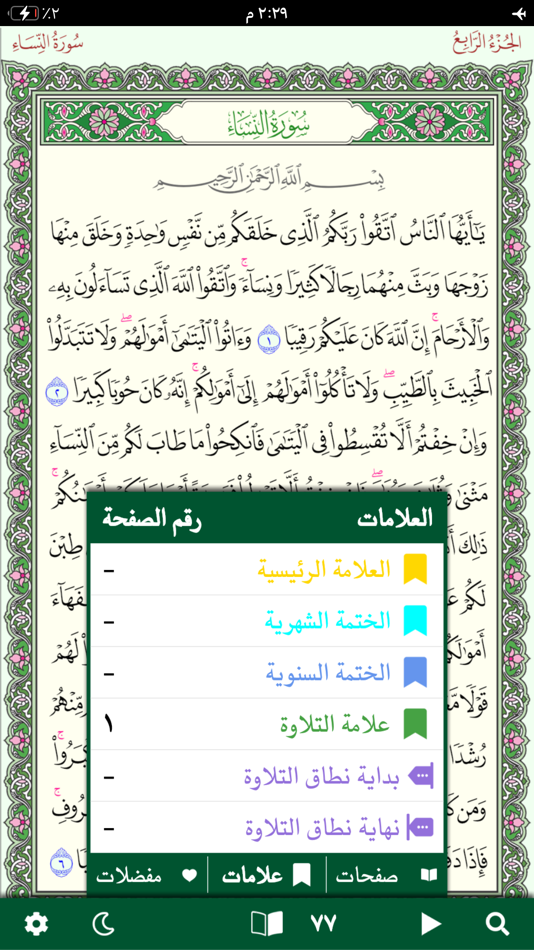 ٪٢
٢:٢٩ م
الجزء الرابع
سورة النساء
سُورَةُ النِّسَاءِ
بِسْمِ اللَّهِ الرَّحْمَٰنِ الرَّحِيمِ
يَٰٓأَيُّهَا ٱلنَّاسُ ٱتَّقُوا۟ رَبَّكُمُ ٱلَّذِى خَلَقَكُم مِّن نَّفْسٍ وَٰحِدَةٍ وَخَلَقَ مِنْهَا
زَوْجَهَا وَبَثَّ مِنْهُمَا رِجَالًا كَثِيرًا وَنِسَآءً ۚ وَٱتَّقُوا۟ ٱللَّهَ ٱلَّذِى تَسَآءَلُونَ بِهِۦ
وَٱلْأَرْحَامَ ۚ إِنَّ ٱللَّهَ كَانَ عَلَيْكُمْ رَقِيبًا ١ وَءَاتُوا۟ ٱلْيَتَٰمَىٰٓ أَمْوَٰلَهُمْ ۖ وَلَا تَتَبَدَّلُوا۟
ٱلْخَبِيثَ بِٱلطَّيِّبِ ۖ وَلَا تَأْكُلُوٓا۟ أَمْوَٰلَهُمْ إِلَىٰٓ أَمْوَٰلِكُمْ ۚ إِنَّهُۥ كَانَ حُوبًا كَبِيرًا ٢
وَإِنْ خِفْتُمْ أَلَّا تُقْسِطُوا۟ فِى ٱلْيَتَٰمَىٰ فَٱنكِحُوا۟ مَا طَابَ لَكُم مِّنَ ٱلنِّسَآءِ
مَثْنَىٰ
ذَٰلِكَ
لَكُمْ
قَوْلًا
لَهُمْ
مِّنْهُمْ
رُشْدًا
وَمَن
فَإِذَا
٦
العلامات رقم الصفحة
العلامة الرئيسية –
الختمة الشهرية –
الختمة السنوية –
علامة التلاوة ١
بداية نطاق التلاوة –
نهاية نطاق التلاوة –
صفحات علامات مفضلات
٧٧